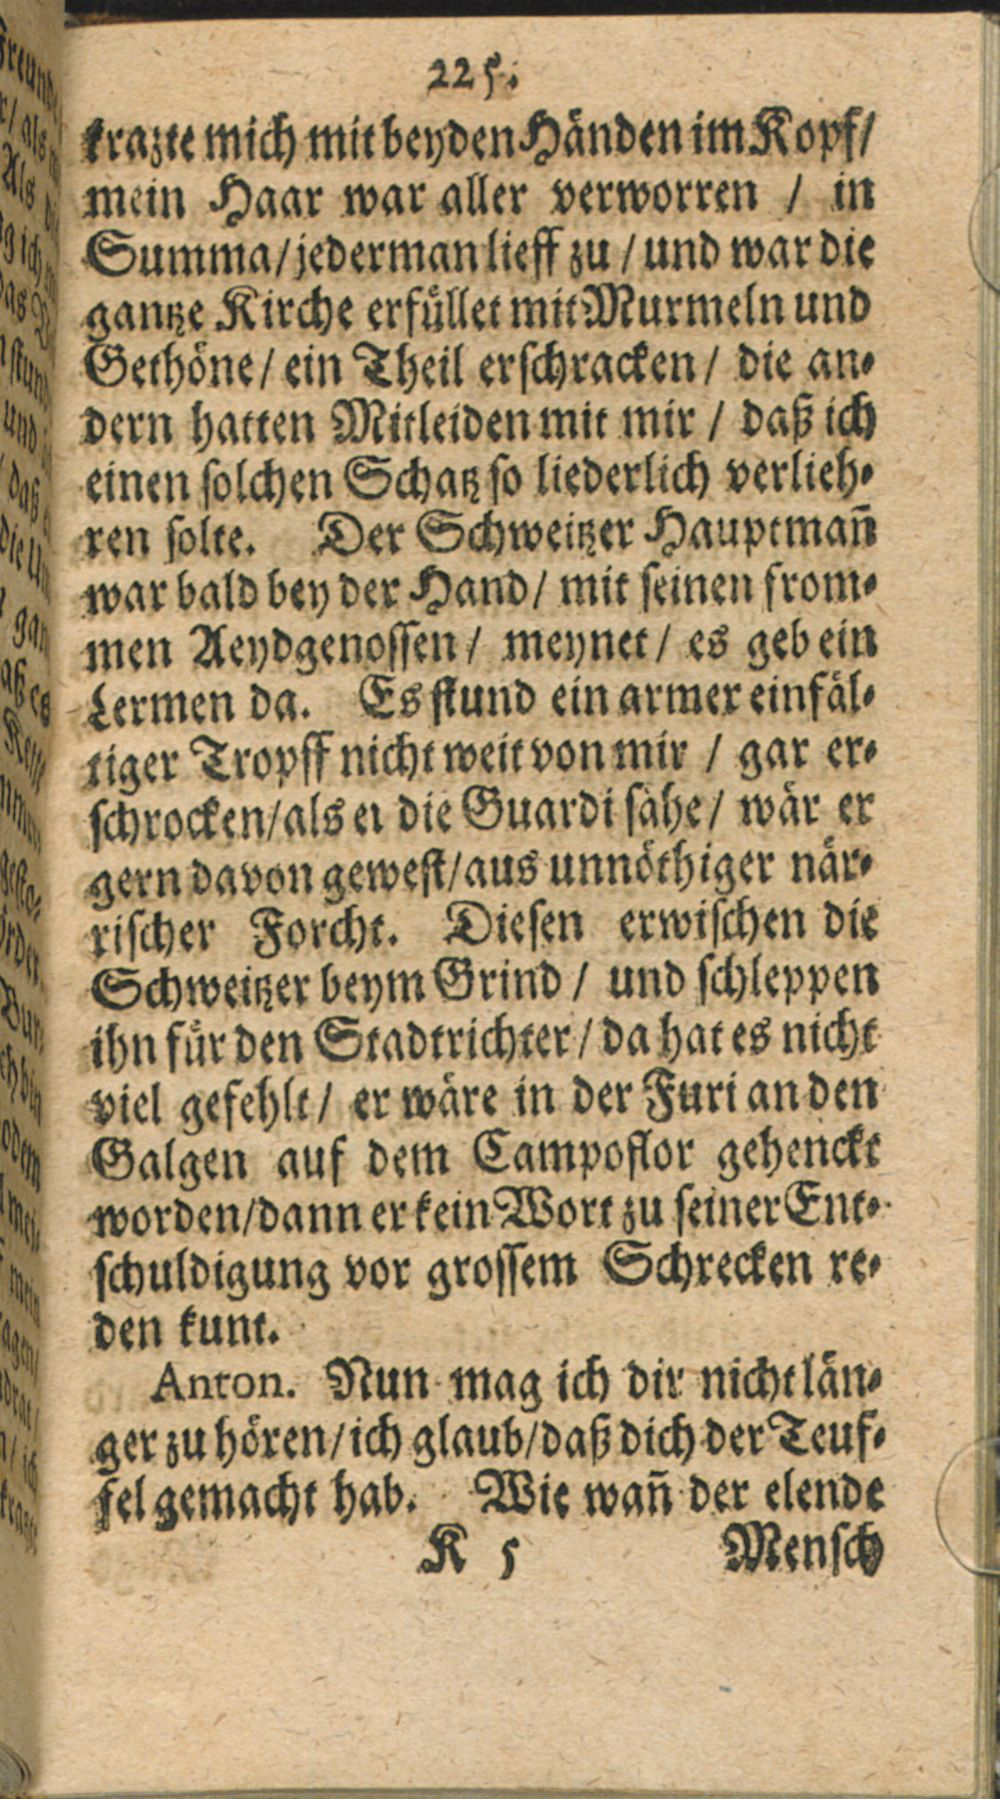 225.
krazte mich mit beyden Händen im Kopf/
mein Haar war aller verworren / in
Summa/jederman lieff zu / und war die
gantze Kirche erfüllet mit Murmeln und
Gethöne/ ein Theil erschracken/ die an-
dern hatten Mitleiden mit mir / daß ich
einen solchen Schatz so liederlich verlieh-
ren solte. Der Schweitzer Hauptmañ
war bald bey der Hand/ mit seinen from-
men Aeydgenossen/ meynet/ es geb ein
Lermen da. Es stund ein armer einfäl-
tiger Tropff nicht weit von mir / gar er-
schrocken/als er die Guardi sahe/ wär er
gern davon gewest/aus unnöthiger när-
rischer Forcht. Diesen erwischen die
Schweitzer beym Grind / und schleppen
ihn für den Stadtrichter/da hat es nicht
viel gefehlt/ er wäre in der Furi an den
Galgen auf dem Campoflor gehenckt
worden/dann er kein Wort zu seiner Ent-
schuldigung vor grossem Schrecken re-
den kunt.
Anton. Nun mag ich dir nicht län-
ger zu hören/ich glaub/daß dich der Teuf-
fel gemacht hab. Wie wañ der elende
K 5 Mensch